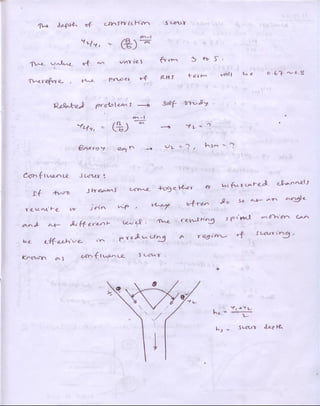 The depth of constriction scour
y₂/y₁ = (B/b)^(m-1)/m
The value of m varies from 3 to 5.
Therefore, the power of RHS term will be 0.67 ~ 0.8
Related problems → self study
y₂/y₁ = (B/b)^(m-1)/m → y₂ = ?
Energy eqn → v₂ = ?, hsm = ?
Confluence scour :
If two streams come together or bifurcated channels
reunite or join up, they often do so at an angle
and at different level. The resulting spiral motion can
be effective in producing a region of scouring,
known as confluence scour.
θ θ
y₁ y₂
hc = y₁+y₂/2
hs = scour depth